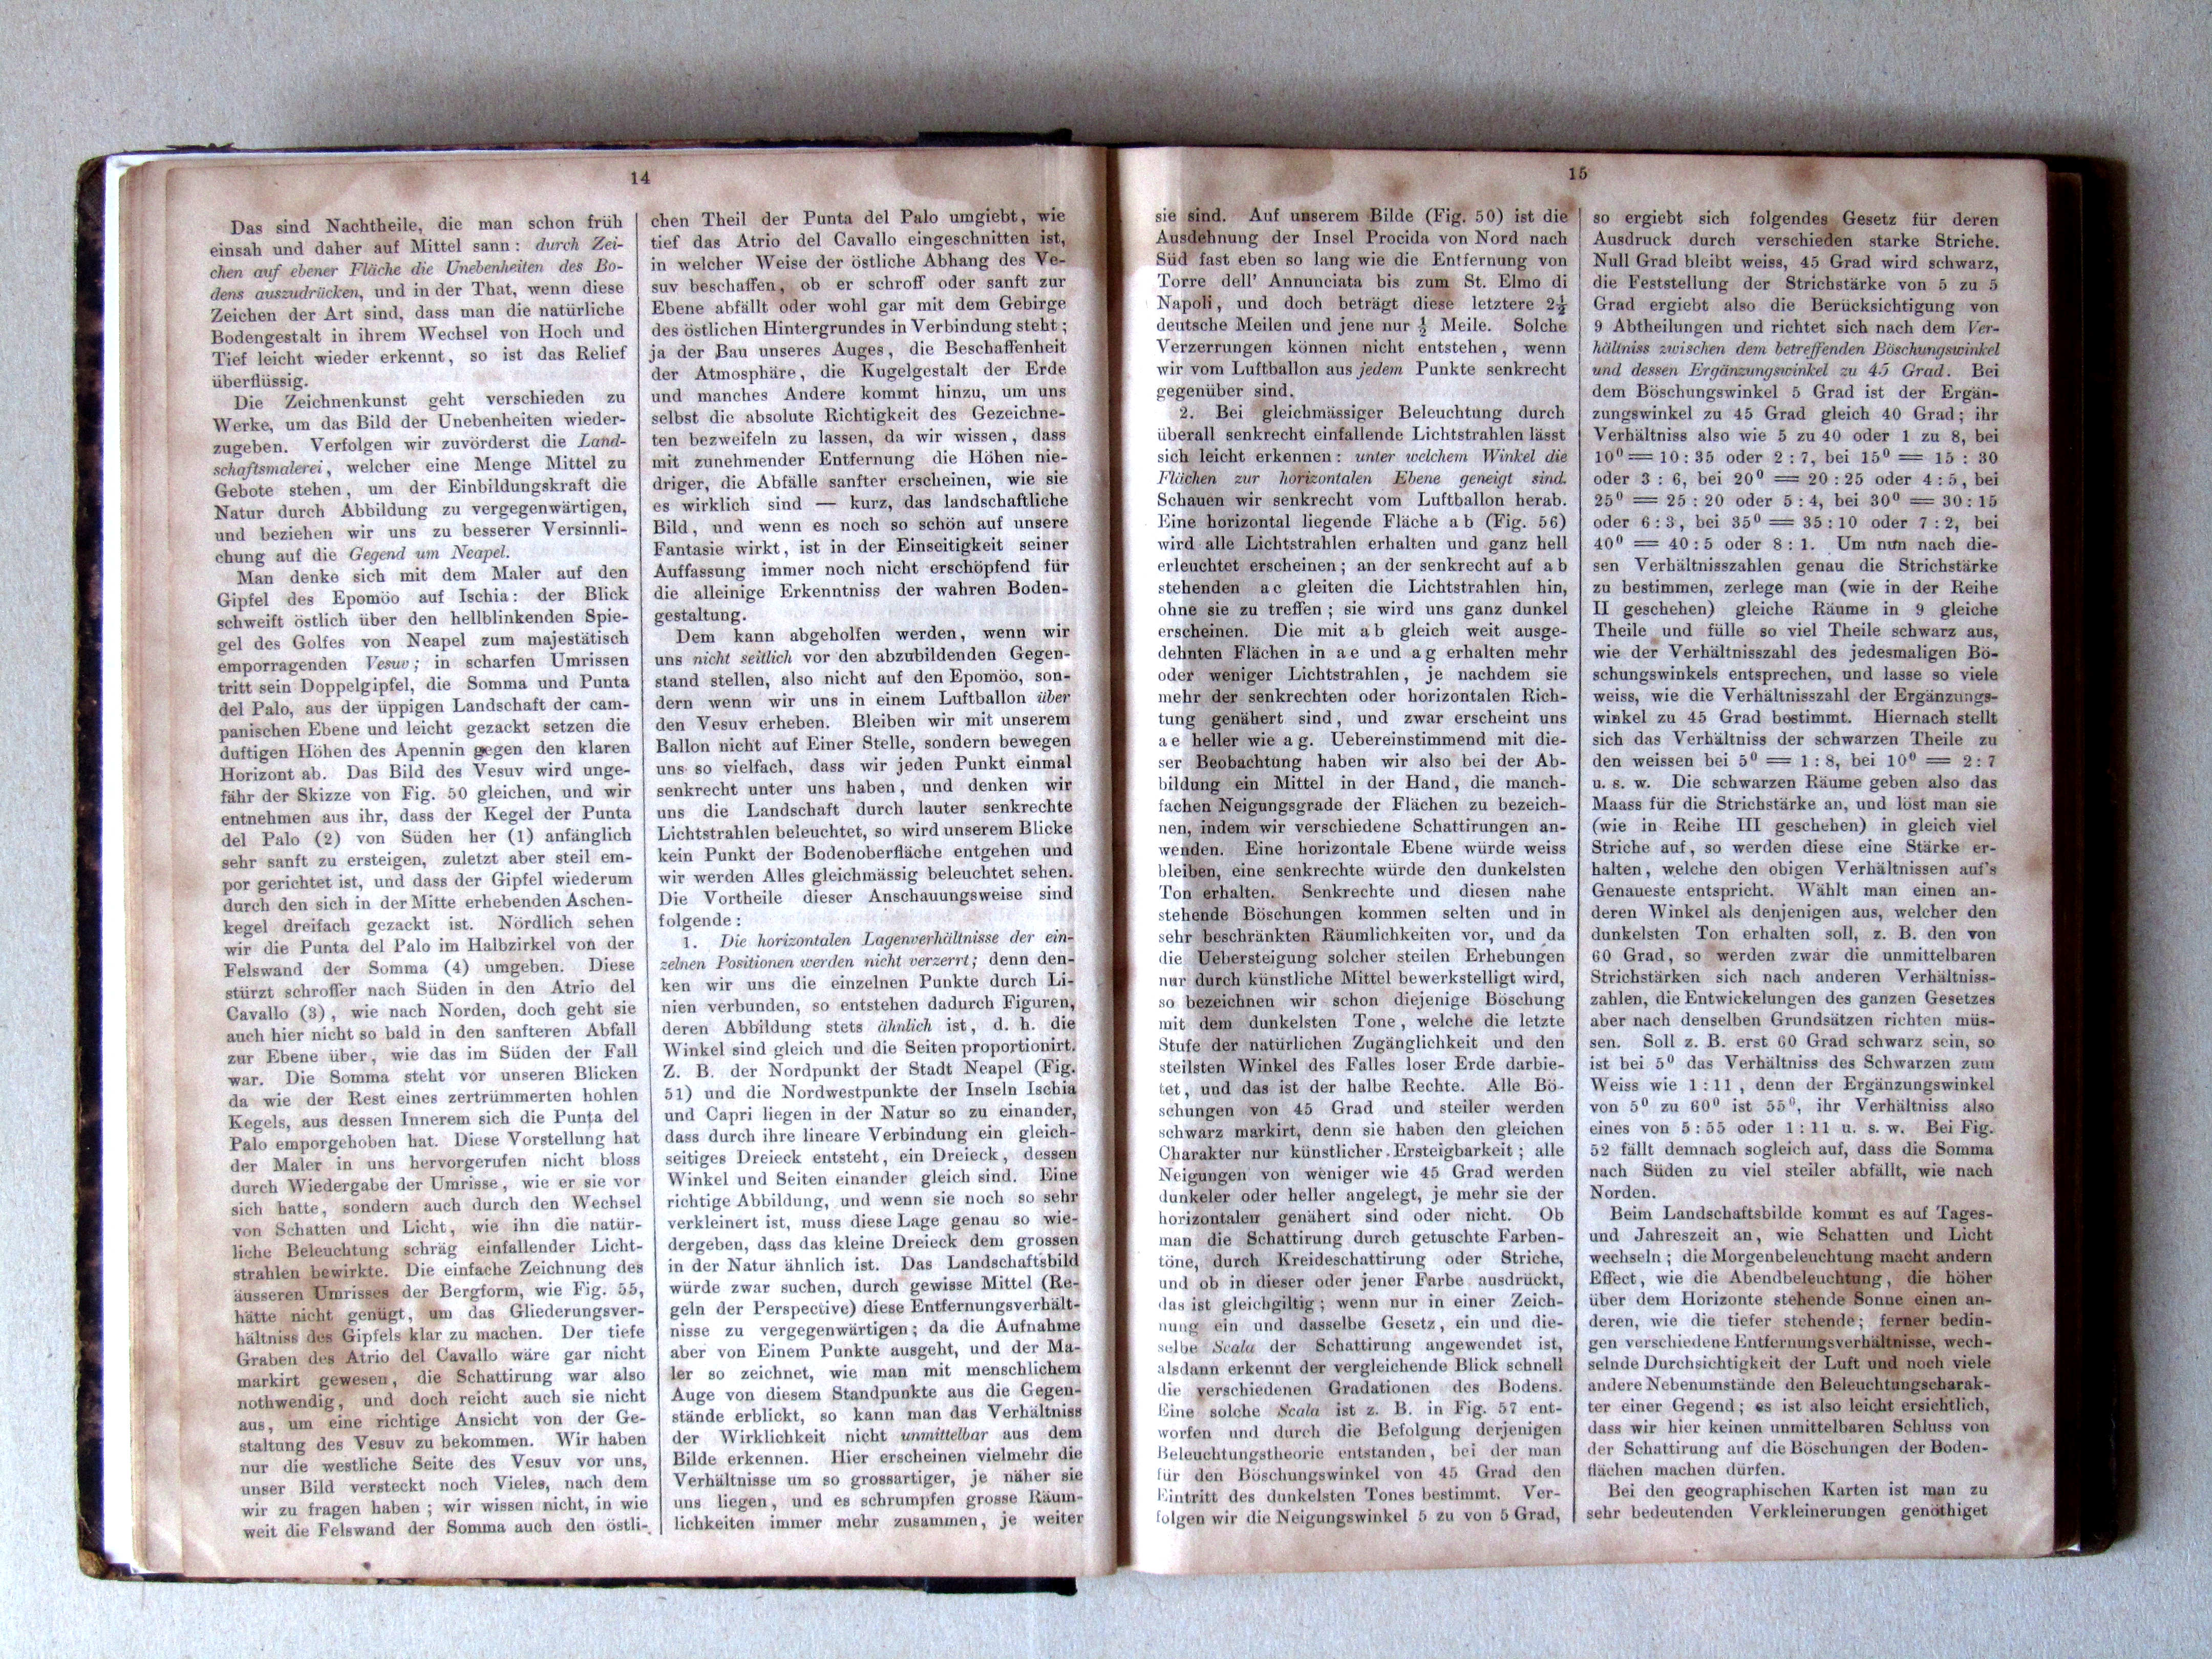 14
Das sind Nachtheile, die man schon früh
einsah und daher auf Mittel sann: durch Zei-
chen auf ebener Fläche die Unebenheiten des Bo-
dens auszudrücken, und in der That, wenn diese
Zeichen der Art sind, dass man die natürliche
Bodengestalt in ihrem Wechsel von Hoch und
Tief leicht wieder erkennt, so ist das Relief
überflüssig.
Die Zeichnenkunst geht verschieden zu
Werke, um das Bild der Unebenheiten wieder-
zugeben. Verfolgen wir zuvörderst die Land-
schaftsmalerei, welcher eine Menge Mittel zu
Gebote stehen, um der Einbildungskraft die
Natur durch Abbildung zu vergegenwärtigen,
und beziehen wir uns zu besserer Versinnli-
chung auf die Gegend um Neapel.
Man denke sich mit dem Maler auf den
Gipfel des Epomöo auf Ischia: der Blick
schweift östlich über den hellblinkenden Spie-
gel des Golfes von Neapel zum majestätisch
emporragenden Vesuv; in scharfen Umrissen
tritt sein Doppelgipfel, die Somma und Punta
del Palo, aus der üppigen Landschaft der cam-
panischen Ebene und leicht gezackt setzen die
duftigen Höhen des Apennin gegen den klaren
Horizont ab. Das Bild des Vesuv wird unge-
fähr der Skizze von Fig. 50 gleichen, und wir
entnehmen aus ihr, dass der Kegel der Punta
del Palo (2) von Süden her (1) anfänglich
sehr sanft zu ersteigen, zuletzt aber steil em-
por gerichtet ist, und dass der Gipfel wiederum
durch den sich in der Mitte erhebenden Aschen-
kegel dreifach gezackt ist. Nördlich sehen
wir die Punta del Palo im Halbzirkel von der
Felswand der Somma (4) umgeben. Diese
stürzt schroffer nach Süden in den Atrio del
Cavallo (3), wie nach Norden, doch geht sie
auch hier nicht so bald in den sanfteren Abfall
zur Ebene über, wie das im Süden der Fall
war. Die Somma steht vor unseren Blicken
da wie der Rest eines zertrümmerten hohlen
Kegels, aus dessen Innerem sich die Punta del
Palo emporgehoben hat. Diese Vorstellung hat
der Maler in uns hervorgerufen nicht bloss
durch Wiedergabe der Umrisse, wie er sie vor
sich hatte, sondern auch durch den Wechsel
von Schatten und Licht, wie ihn die natür-
liche Beleuchtung schräg einfallender Licht-
strahlen bewirkte. Die einfache Zeichnung des
äusseren Umrisses der Bergform, wie Fig. 55,
hätte nicht genügt, um das Gliederungsver-
hältniss des Gipfels klar zu machen. Der tiefe
Graben des Atrio del Cavallo wäre gar nicht
markirt gewesen, die Schattirung war also
nothwendig, und doch reicht auch sie nicht
aus, um eine richtige Ansicht von der Ge-
staltung des Vesuv zu bekommen. Wir haben
nur die westliche Seite des Vesuv vor uns,
unser Bild versteckt noch Vieles, nach dem
wir zu fragen haben; wir wissen nicht, in wie
weit die Felswand der Somma auch den östli-
chen Theil der Punta del Palo umgiebt, wie
tief das Atrio del Cavallo eingeschnitten ist,
in welcher Weise der östliche Abhang des Ve-
suv beschaffen, ob er schroff oder sanft zur
Ebene abfällt oder wohl gar mit dem Gebirge
des östlichen Hintergrundes in Verbindung steht;
ja der Bau unseres Auges, die Beschaffenheit
der Atmosphäre, die Kugelgestalt der Erde
und manches Andere kommt hinzu, um uns
selbst die absolute Richtigkeit des Gezeichne-
ten bezweifeln zu lassen, da wir wissen, dass
mit zunehmender Entfernung die Höhen nie-
driger, die Abfälle sanfter erscheinen, wie sie
es wirklich sind — kurz, das landschaftliche
Bild, und wenn es noch so schön auf unsere
Fantasie wirkt, ist in der Einseitigkeit seiner
Auffassung immer noch nicht erschöpfend für
die alleinige Erkenntniss der wahren Boden-
gestaltung.
Dem kann abgeholfen werden, wenn wir
uns nicht seitlich vor den abzubildenden Gegen-
stand stellen, also nicht auf den Epomöo, son-
dern wenn wir uns in einem Luftballon über
den Vesuv erheben. Bleiben wir mit unserem
Ballon nicht auf Einer Stelle, sondern bewegen
uns so vielfach, dass wir jeden Punkt einmal
senkrecht unter uns haben, und denken wir
uns die Landschaft durch lauter senkrechte
Lichtstrahlen beleuchtet, so wird unserem Blicke
kein Punkt der Bodenoberfläche entgehen und
wir werden Alles gleichmässig beleuchtet sehen.
Die Vortheile dieser Anschauungsweise sind
folgende:
1. Die horizontalen Lagenverhältnisse der ein-
zelnen Positionen werden nicht verzerrt; denn den-
ken wir uns die einzelnen Punkte durch Li-
nien verbunden, so entstehen dadurch Figuren,
deren Abbildung stets ähnlich ist, d. h. die
Winkel sind gleich und die Seiten proportionirt.
Z. B. der Nordpunkt der Stadt Neapel (Fig.
51) und die Nordwestpunkte der Inseln Ischia
und Capri liegen in der Natur so zu einander,
dass durch ihre lineare Verbindung ein gleich-
seitiges Dreieck entsteht, ein Dreieck, dessen
Winkel und Seiten einander gleich sind. Eine
richtige Abbildung, und wenn sie noch so sehr
verkleinert ist, muss diese Lage genau so wie-
dergeben, dass das kleine Dreieck dem grossen
in der Natur ähnlich ist. Das Landschaftsbild
würde zwar suchen, durch gewisse Mittel (Re-
geln der Perspective) diese Entfernungsverhält-
nisse zu vergegenwärtigen; da die Aufnahme
aber von Einem Punkte ausgeht, und der Ma-
ler so zeichnet, wie man mit menschlichem
Auge von diesem Standpunkte aus die Gegen-
stände erblickt, so kann man das Verhältniss
der Wirklichkeit nicht unmittelbar aus dem
Bilde erkennen. Hier erscheinen vielmehr die
Verhältnisse um so grossartiger, je näher sie
uns liegen, und es schrumpfen grosse Räum-
lichkeiten immer mehr zusammen, je weiter
15
sie sind. Auf unserem Bilde (Fig. 50) ist die
Ausdehnung der Insel Procida von Nord nach
Süd fast eben so lang wie die Entfernung von
Torre dell' Annunciata bis zum St. Elmo di
Napoli, und doch beträgt diese letztere 2½
deutsche Meilen und jene nur ½ Meile. Solche
Verzerrungen können nicht entstehen, wenn
wir vom Luftballon aus jedem Punkte senkrecht
gegenüber sind.
2. Bei gleichmässiger Beleuchtung durch
überall senkrecht einfallende Lichtstrahlen lässt
sich leicht erkennen: unter welchem Winkel die
Flächen zur horizontalen Ebene geneigt sind.
Schauen wir senkrecht vom Luftballon herab.
Eine horizontal liegende Fläche a b (Fig. 56)
wird alle Lichtstrahlen erhalten und ganz hell
erleuchtet erscheinen; an der senkrecht auf a b
stehenden a c gleiten die Lichtstrahlen hin,
ohne sie zu treffen; sie wird uns ganz dunkel
erscheinen. Die mit a b gleich weit ausge-
dehnten Flächen in a e und a g erhalten mehr
oder weniger Lichtstrahlen, je nachdem sie
mehr der senkrechten oder horizontalen Rich-
tung genähert sind, und zwar erscheint uns
a e heller wie a g. Uebereinstimmend mit die-
ser Beobachtung haben wir also bei der Ab-
bildung ein Mittel in der Hand, die manch-
fachen Neigungsgrade der Flächen zu bezeich-
nen, indem wir verschiedene Schattirungen an-
wenden. Eine horizontale Ebene würde weiss
bleiben, eine senkrechte würde den dunkelsten
Ton erhalten. Senkrechte und diesen nahe
stehende Böschungen kommen selten und in
sehr beschränkten Räumlichkeiten vor, und da
die Uebersteigung solcher steilen Erhebungen
nur durch künstliche Mittel bewerkstelligt wird,
so bezeichnen wir schon diejenige Böschung
mit dem dunkelsten Tone, welche die letzte
Stufe der natürlichen Zugänglichkeit und den
steilsten Winkel des Falles loser Erde darbie-
tet, und das ist der halbe Rechte. Alle Bö-
schungen von 45 Grad und steiler werden
schwarz markirt, denn sie haben den gleichen
Charakter nur künstlicher Ersteigbarkeit; alle
Neigungen von weniger wie 45 Grad werden
dunkeler oder heller angelegt, je mehr sie der
horizontalen genähert sind oder nicht. Ob
man die Schattirung durch getuschte Farben-
töne, durch Kreideschattirung oder Striche,
und ob in dieser oder jener Farbe ausdrückt,
das ist gleichgiltig; wenn nur in einer Zeich-
nung ein und dasselbe Gesetz, ein und die-
selbe Scala der Schattirung angewendet ist,
alsdann erkennt der vergleichende Blick schnell
die verschiedenen Gradationen des Bodens.
Eine solche Scala ist z. B. in Fig. 57 ent-
worfen und durch die Befolgung derjenigen
Beleuchtungstheorie entstanden, bei der man
für den Böschungswinkel von 45 Grad den
Eintritt des dunkelsten Tones bestimmt. Ver-
folgen wir die Neigungswinkel 5 zu von 5 Grad,
so ergiebt sich folgendes Gesetz für deren
Ausdruck durch verschieden starke Striche.
Null Grad bleibt weiss, 45 Grad wird schwarz,
die Feststellung der Strichstärke von 5 zu 5
Grad ergiebt also die Berücksichtigung von
9 Abtheilungen und richtet sich nach dem Ver-
hältniss zwischen dem betreffenden Böschungswinkel
und dessen Ergänzungswinkel zu 45 Grad. Bei
dem Böschungswinkel 5 Grad ist der Ergän-
zungswinkel zu 45 Grad gleich 40 Grad; ihr
Verhältniss also wie 5 zu 40 oder 1 zu 8, bei
10⁰ = 10 : 35 oder 2 : 7, bei 15⁰ = 15 : 30
oder 3 : 6, bei 20⁰ = 20 : 25 oder 4 : 5, bei
25⁰ = 25 : 20 oder 5 : 4, bei 30⁰ = 30 : 15
oder 6 : 3, bei 35⁰ = 35 : 10 oder 7 : 2, bei
40⁰ = 40 : 5 oder 8 : 1. Um nun nach die-
sen Verhältnisszahlen genau die Strichstärke
zu bestimmen, zerlege man (wie in der Reihe
II geschehen) gleiche Räume in 9 gleiche
Theile und fülle so viel Theile schwarz aus,
wie der Verhältnisszahl des jedesmaligen Bö-
schungswinkels entsprechen, und lasse so viele
weiss, wie die Verhältnisszahl der Ergänzungs-
winkel zu 45 Grad bestimmt. Hiernach stellt
sich das Verhältniss der schwarzen Theile zu
den weissen bei 5⁰ = 1 : 8, bei 10⁰ = 2 : 7
u. s. w. Die schwarzen Räume geben also das
Maass für die Strichstärke an, und löst man sie
(wie in Reihe III geschehen) in gleich viel
Striche auf, so werden diese eine Stärke er-
halten, welche den obigen Verhältnissen auf's
Genaueste entspricht. Wählt man einen an-
deren Winkel als denjenigen aus, welcher den
dunkelsten Ton erhalten soll, z. B. den von
60 Grad, so werden zwar die unmittelbaren
Strichstärken sich nach anderen Verhältniss-
zahlen, die Entwickelungen des ganzen Gesetzes
aber nach denselben Grundsätzen richten müs-
sen. Soll z. B. erst 60 Grad schwarz sein, so
ist bei 5⁰ das Verhältniss des Schwarzen zum
Weiss wie 1 : 11, denn der Ergänzungswinkel
von 5⁰ zu 60⁰ ist 55⁰, ihr Verhältniss also
eines von 5 : 55 oder 1 : 11 u. s. w. Bei Fig.
52 fällt demnach sogleich auf, dass die Somma
nach Süden zu viel steiler abfällt, wie nach
Norden.
Beim Landschaftsbilde kommt es auf Tages-
und Jahreszeit an, wie Schatten und Licht
wechseln; die Morgenbeleuchtung macht andern
Effect, wie die Abendbeleuchtung, die höher
über dem Horizonte stehende Sonne einen an-
deren, wie die tiefer stehende; ferner bedin-
gen verschiedene Entfernungsverhältnisse, wech-
selnde Durchsichtigkeit der Luft und noch viele
andere Nebenumstände den Beleuchtungscharak-
ter einer Gegend; es ist also leicht ersichtlich,
dass wir hier keinen unmittelbaren Schluss von
der Schattirung auf die Böschungen der Boden-
flächen machen dürfen.
Bei den geographischen Karten ist man zu
sehr bedeutenden Verkleinerungen genöthiget